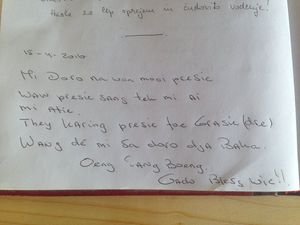 Hvala za lep sprejem in čudovito vodenje!
15-4-2010
Mi Doro na wan mooi presie
Waw presie sang teh mi Ai
mi Atie.
They karing presie foe Grasie (dre)
Wang de mi sa doro dja Baka.
Oeng Sang Boeng
Gado Bless Wie!!